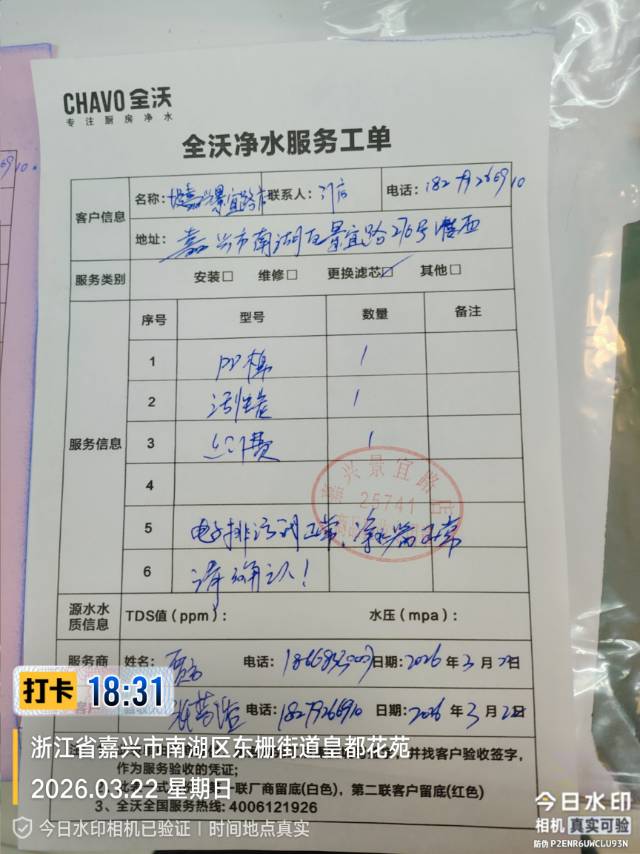 CHAVO 全沃
专注厨房净水
全沃净水服务工单
客户信息
名称: 嘉兴景宜路店 联系人: 门店 电话: 18279266910
地址: 嘉兴市南湖区景宜路276号
服务类别 安装□ 维修□ 更换滤芯☑ 其他□
服务信息
序号 型号 数量 备注
1 PP棉 1
2 活性炭 1
3 上门费 1
4
5 电子排污阀正常、净水器正常
6 请确认!
嘉兴景宜路店
25741
源水水质信息 TDS值(ppm): 水压(mpa):
服务商 姓名: 电话: 日期: 2026年3月22日
电话: 18279266910 日期: 2026年3月22日
并找客户验收签字,
作为服务验收的凭证;
联厂商留底(白色), 第二联客户留底(红色)
3、全沃全国服务热线: 4006121926
打卡 18:31
浙江省嘉兴市南湖区东栅街道皇都花苑
2026.03.22 星期日
今日水印相机已验证 | 时间地点真实
今日水印
相机 真实可验
防伪 P2ENR6UWCLU93N